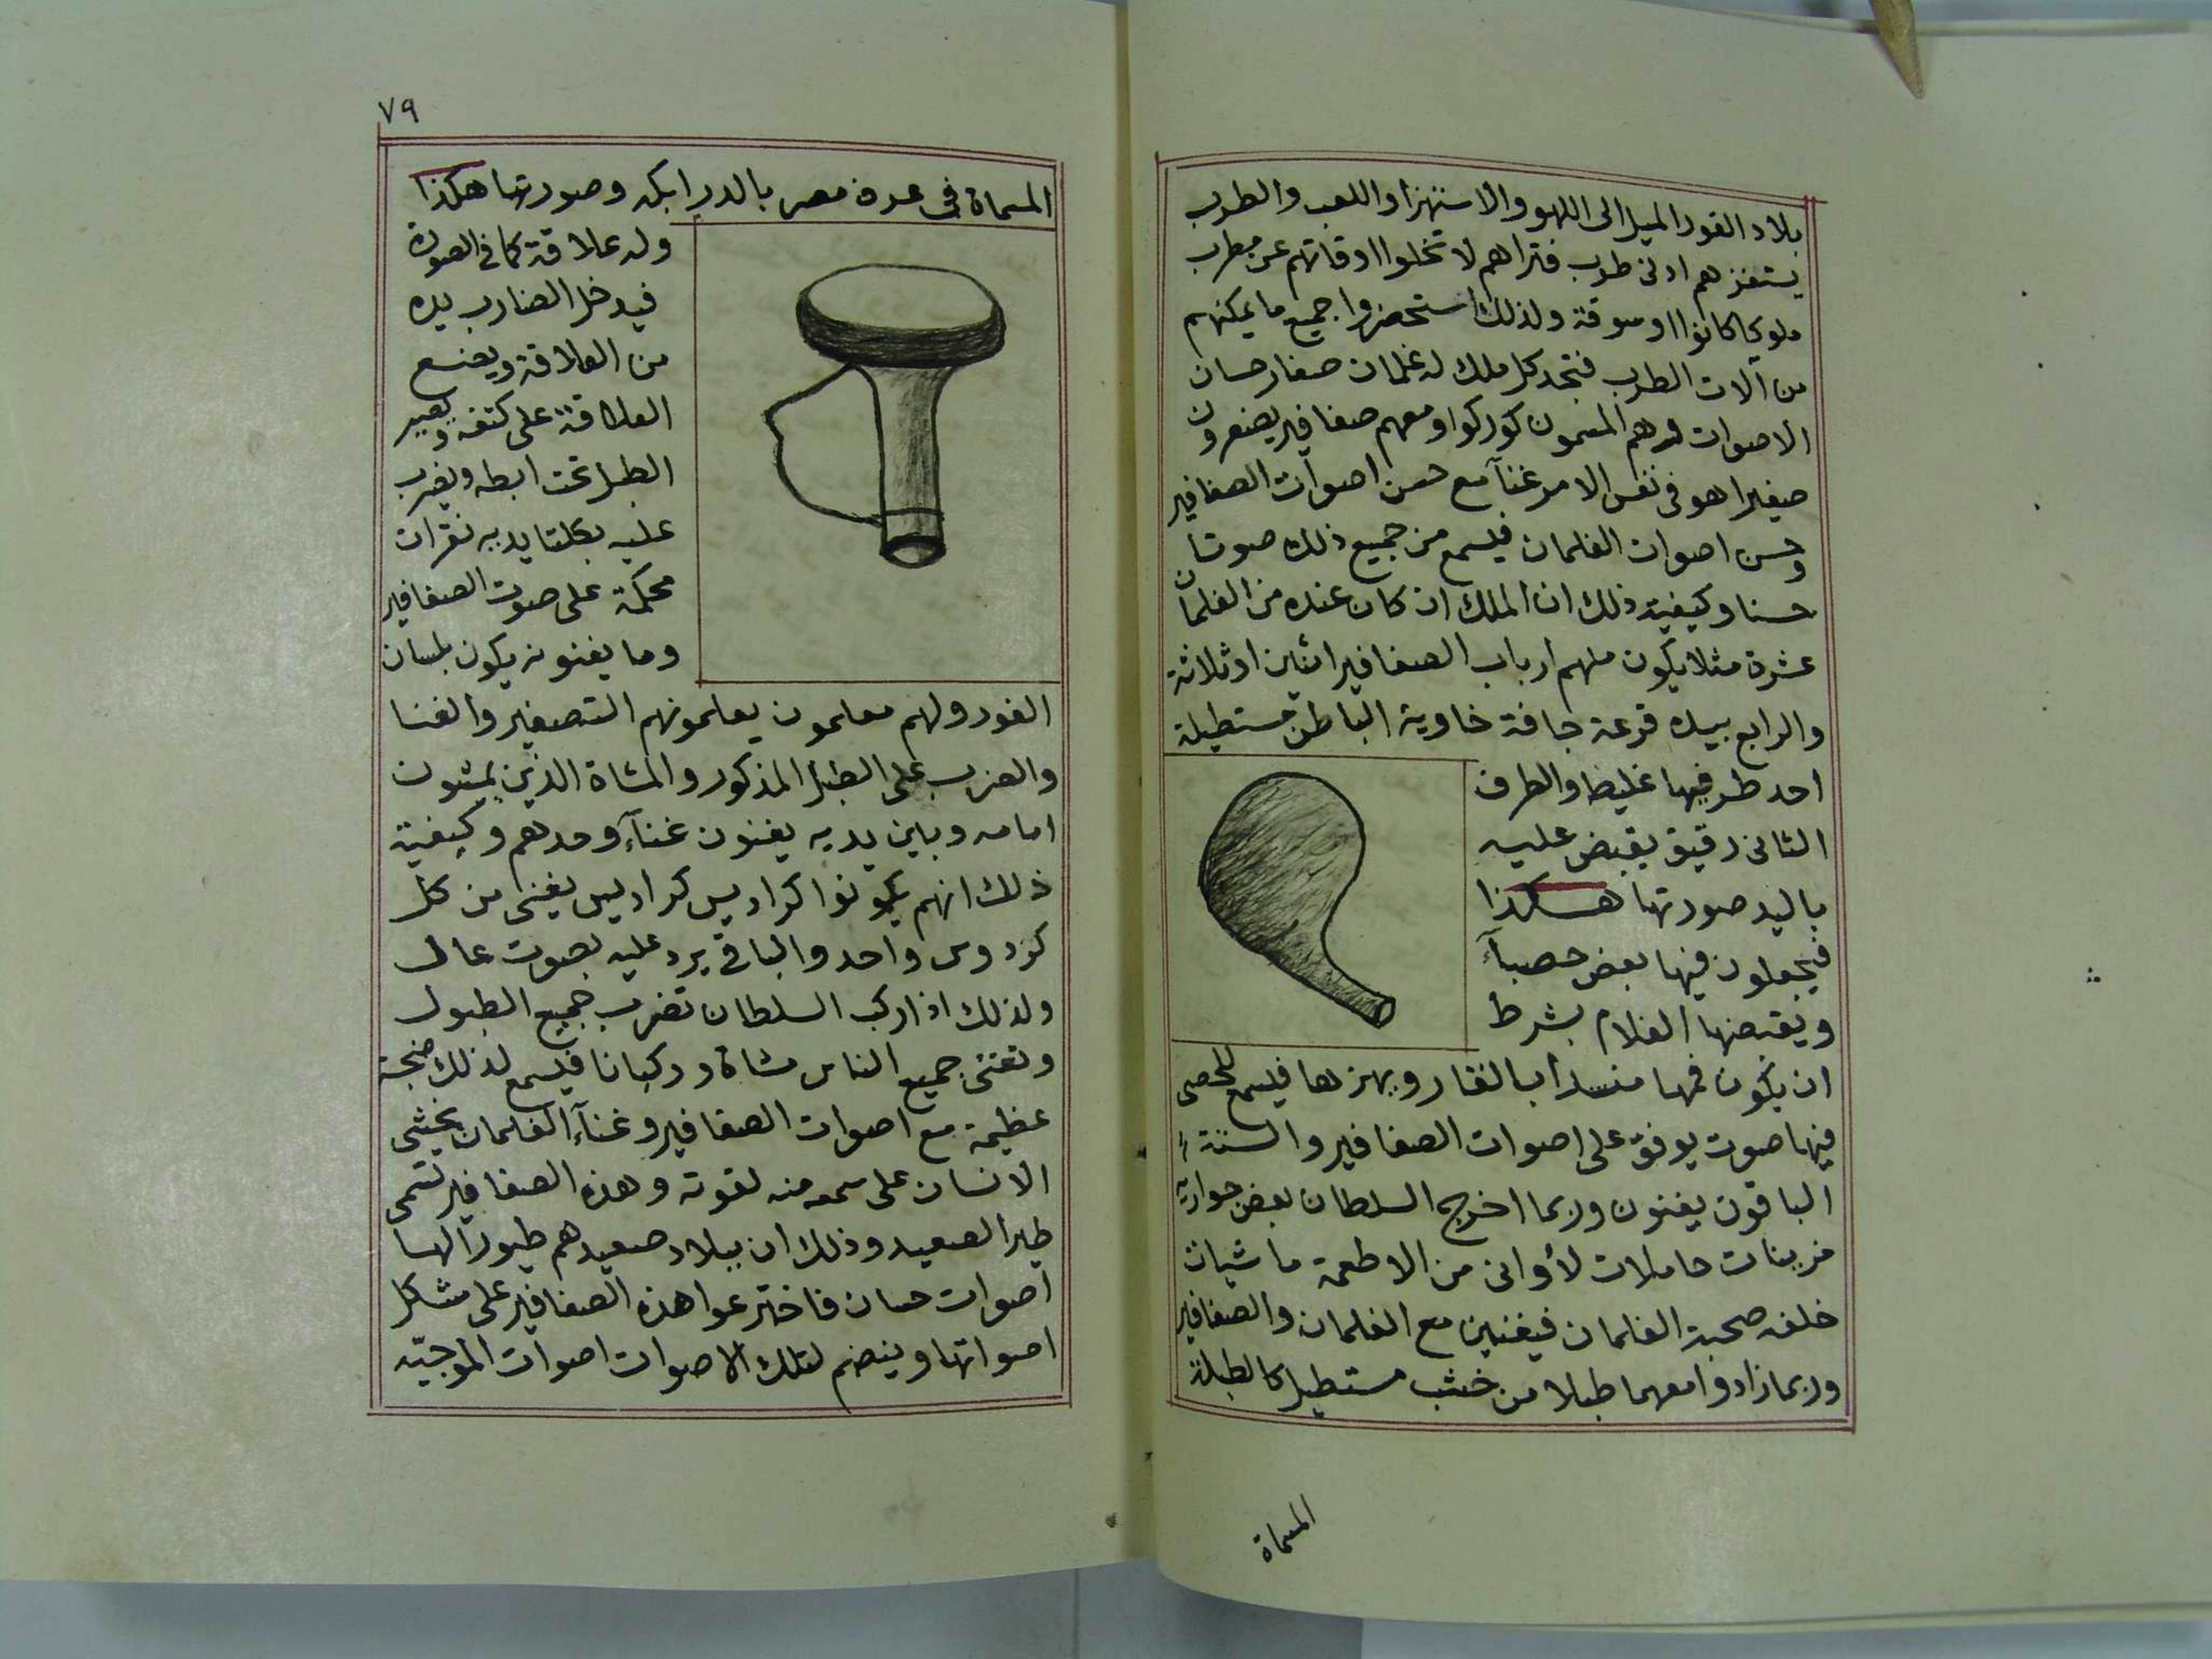 بلاد الفور الميل الى اللهو والاستهزا واللعب والطرب
يستفزهم ادنى طرب فتراهم لا تخلوا اوقاتهم عن مطرب
ملوكا كانوا او سوقة ولذلك استحضروا جميع ما يمكنهم
من آلات الطرب فتجد كل ملك له غلمان صغار حسان
الاصوات وهم المسمون كوركوا ومعهم صفافير يصفرون
صفيرا هو فى نفس الامر غنآ مع حسن اصوات الصفافير
وحسن اصوات الغلمان فيسمع من جميع ذلك صوتا
حسنا وكيفية ذلك ان الملك ان كان عنده من الغلمان
عشرة مثلا يكون منهم ارباب الصفافير اثنين او ثلاثة
والرابع بيده قرعة جافة خاوية الباطن مستطيلة
احد طرفيها غليظ والطرف
الثانى رقيق يقبض عليه
باليد صورتها هكذا
فيجعلون فيها بعض حصبآء
ويقبضها الغلام بشرط
ان يكون فمها منسدا بالقار ويهزها فيسمع للحصى
فيها صوت يوفق على اصوات الصفافير والستة
الباقون يغنون وربما اخرج السلطان بعض جواريه
من بنات حاملات لأوانى من الاطعمة ماشيات
خلفه صحبة الغلمان فيغنين مع الغلمان والصفافير
وربما زادوا معهما طبلا من خشب مستطيل كالطبلة
المسماة
٧٩
المسماة فى عرف مصر بالدرابكه وصورتها هكذا
وله علاقة كما فى الصورة
فيدخل الضارب يده
من العلاقة ويضع
العلاقة على كتفه ويصير
الطبل تحت ابطه ويضرب
عليه بكلتا يديه نقرات
محكمة على صوت الصفافير
وما يغنونه يكون بلسان
الفور ولهم معلمون يعلمونهم التصفير والغنا
والضرب على الطبل المذكور والمشاة الذين يمشون
امامه وبين يديه يغنون غنآء وحدهم وكيفية
ذلك انهم يكونوا كراديس كراديس يغنى من كل
كردوس واحد والباقى يرد عليه بصوت عال
ولذلك اذا ركب السلطان تضرب جميع الطبول
وتغنى جميع الناس مشاة وركبانا فيسمع لذلك ضجة
عظيمة مع اصوات الصفافير وغنآء الغلمان يخشى
الانسان على سمعه منه لقوته وهذه الصفافير تسمى
طير الصعيد وذلك ان ببلاد صعيدهم طيورا لها
اصوات حسان فاخترعوا هذه الصفافير على مشاكل
اصواتها وينضم لتلك الاصوات اصوات الموجيه